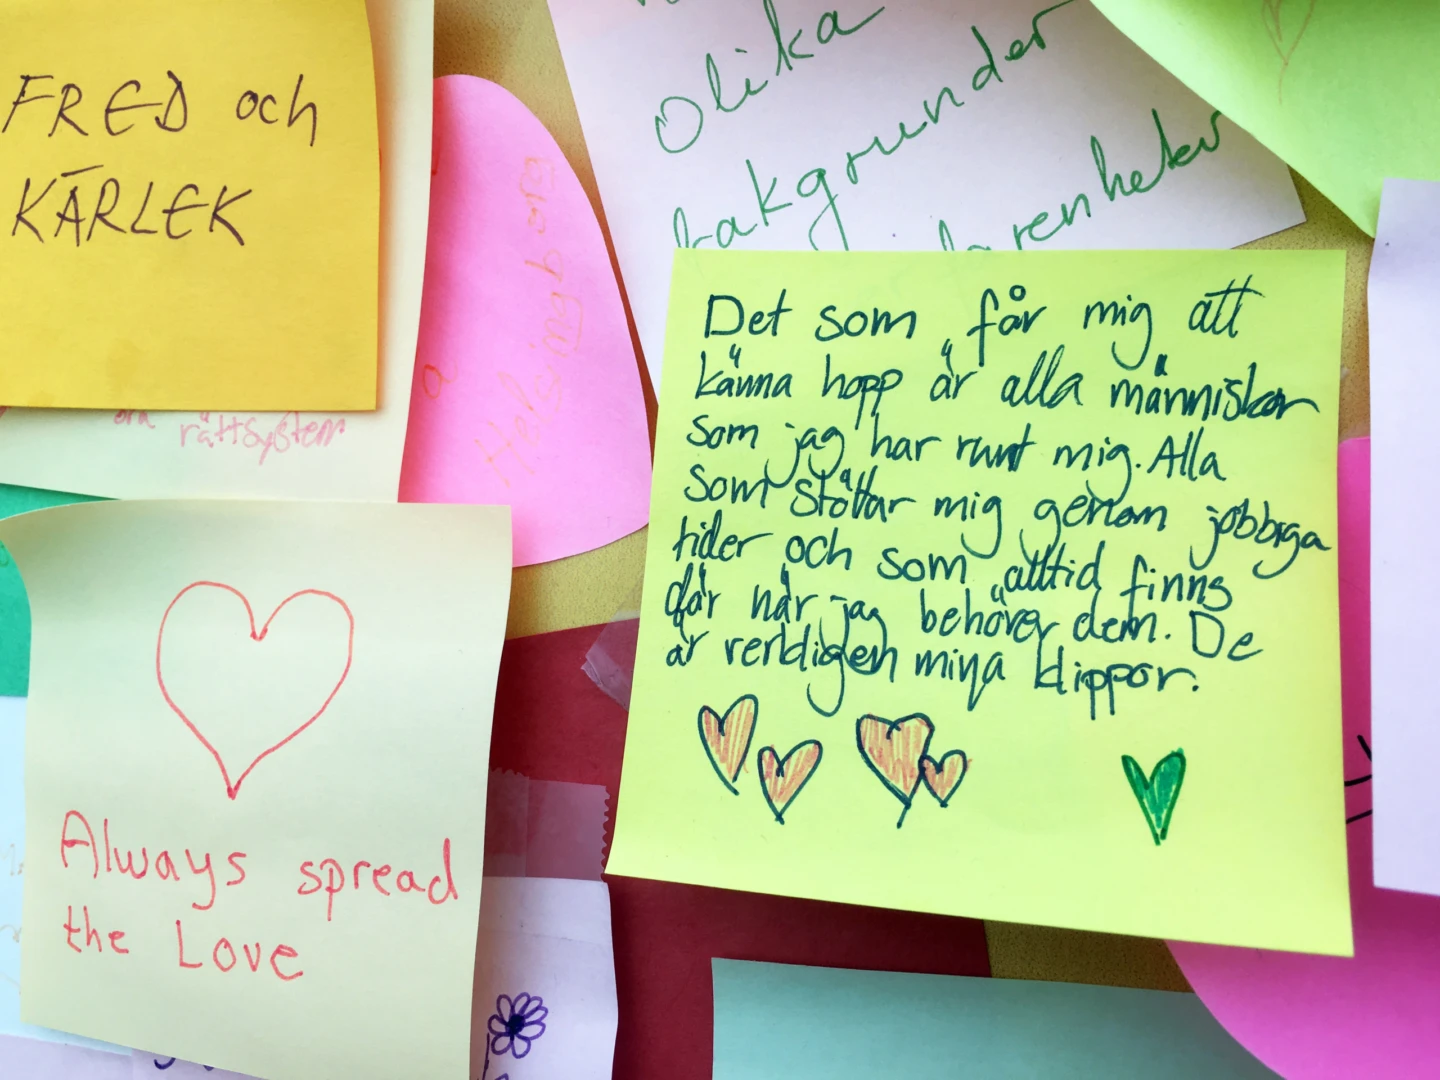 FRED och
KÄRLEK
olika
bakgrunder
rättsystem
Det som får mig att
känna hopp är alla människor
som jag har runt mig. Alla
som stöttar mig genom jobbiga
tider och som alltid finns
där när jag behöver dem. De
är verkligen mina klippor.
Always spread
the Love